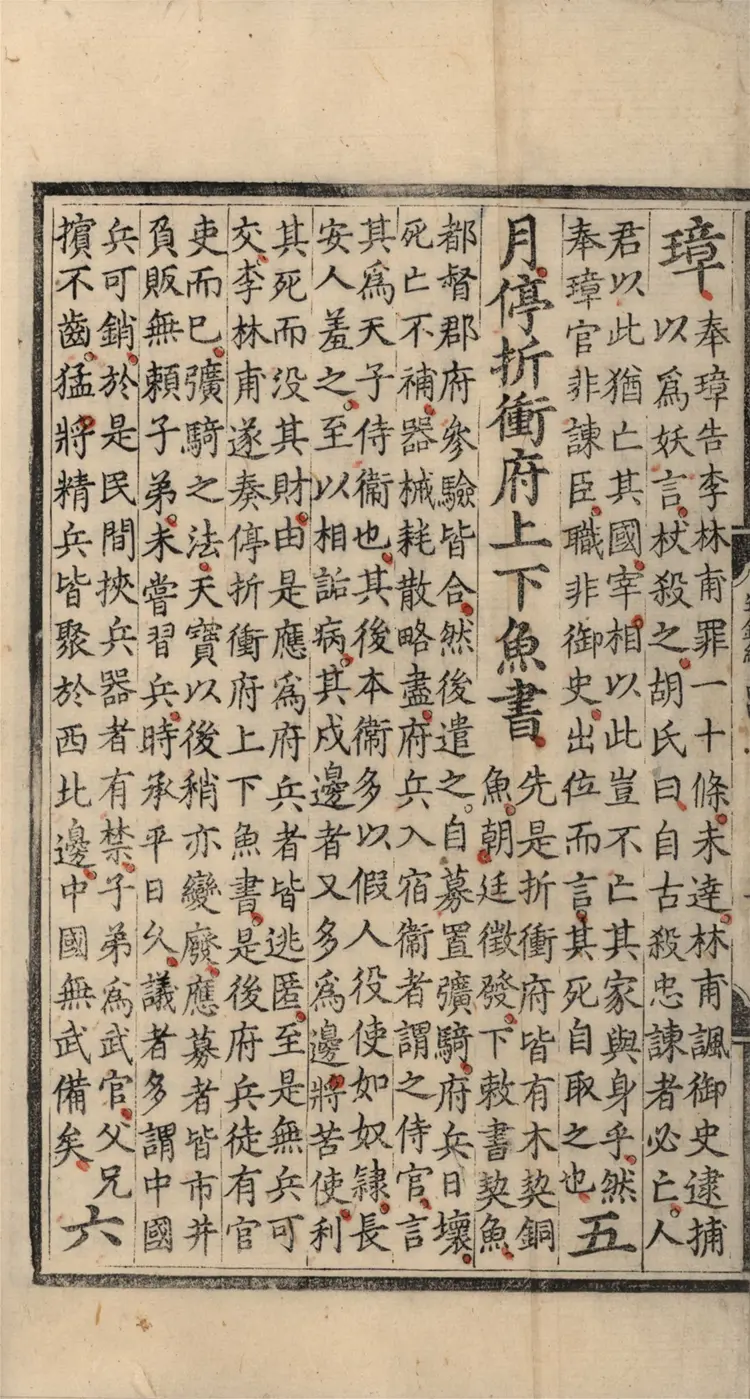 璋
奉璋告李林甫罪一十條未達林甫諷御史逮捕
以爲妖言杖殺之胡氏曰自古殺忠諫者必亡人
君以此猶亡其國宰相以此豈不亡其家與身乎然
奉璋官非諫臣職非御史出位而言其死自取之也
五
月停折衝府上下魚書
先是折衝府皆有木契銅
魚朝廷徵發下敕書契魚
都督郡府參驗皆合然後遣之自募置彍騎府兵日壞
死亡不補器械耗散略盡府兵入宿衞者謂之侍官言
其爲天子侍衞也其後本衞多以假人役使如奴隸長
安人羞之至以相詬病其戍邊者又多爲邊將苦使利
其死而没其財由是應爲府兵者皆逃匿至是無兵可
交李林甫遂奏停折衝府上下魚書是後府兵徒有官
吏而已彍騎之法天寶以後稍亦變廢應募者皆市井
負販無賴子弟未嘗習兵時承平日久議者多謂中國
兵可銷於是民間挾兵器者有禁子弟爲武官父兄
擯不齒猛將精兵皆聚於西北邊中國無武備矣
六